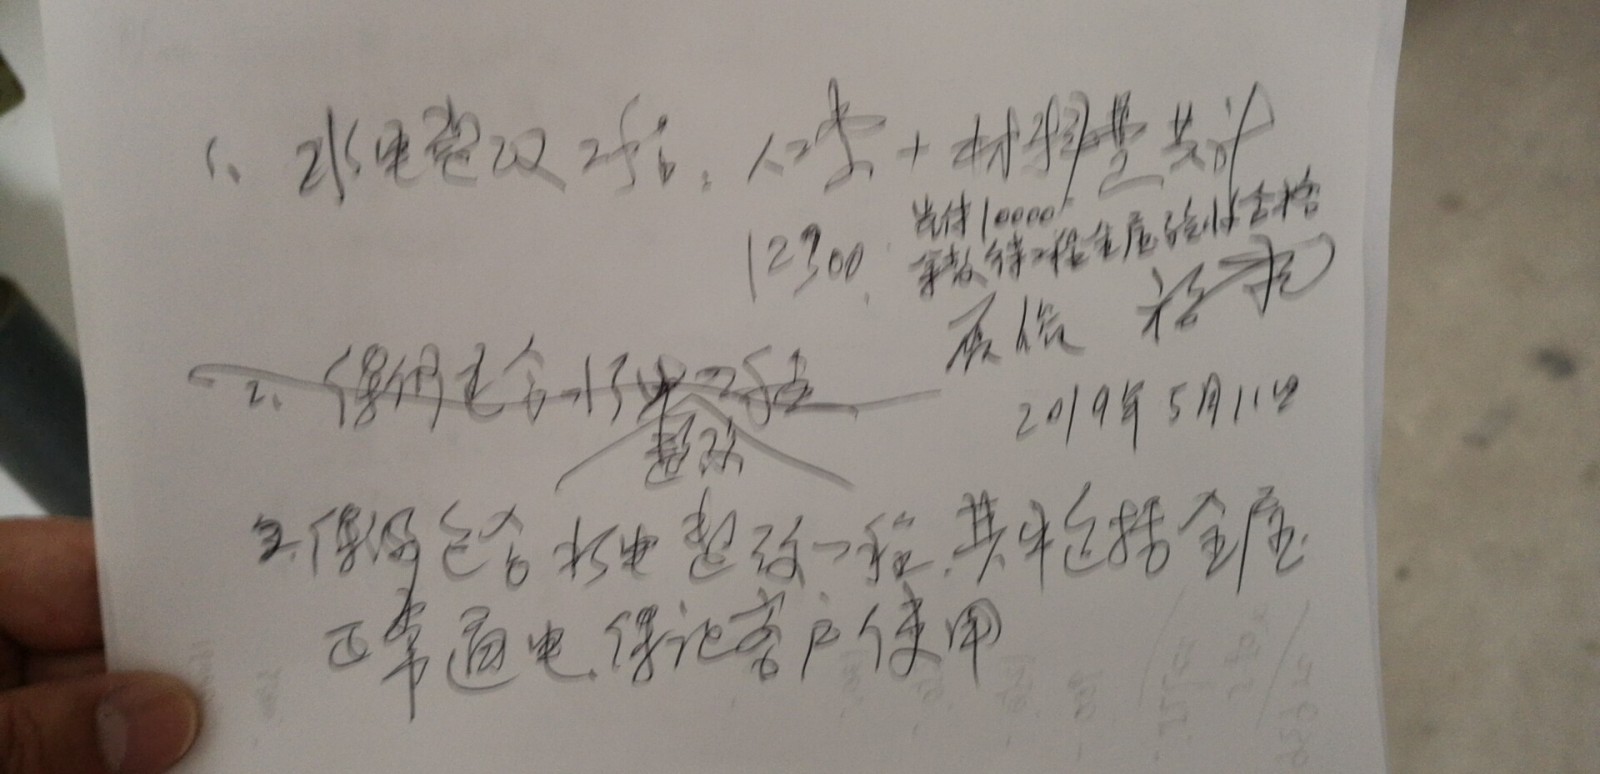 1、水电整改工程：人工费＋材料费共计
12300.
先付10000
余款待工程全屋验收合格
2019年5月11日
2、保修包含水电工程
整改
2、保修包含水电整改工程.其中包括全屋
正常通电.保证客户使用